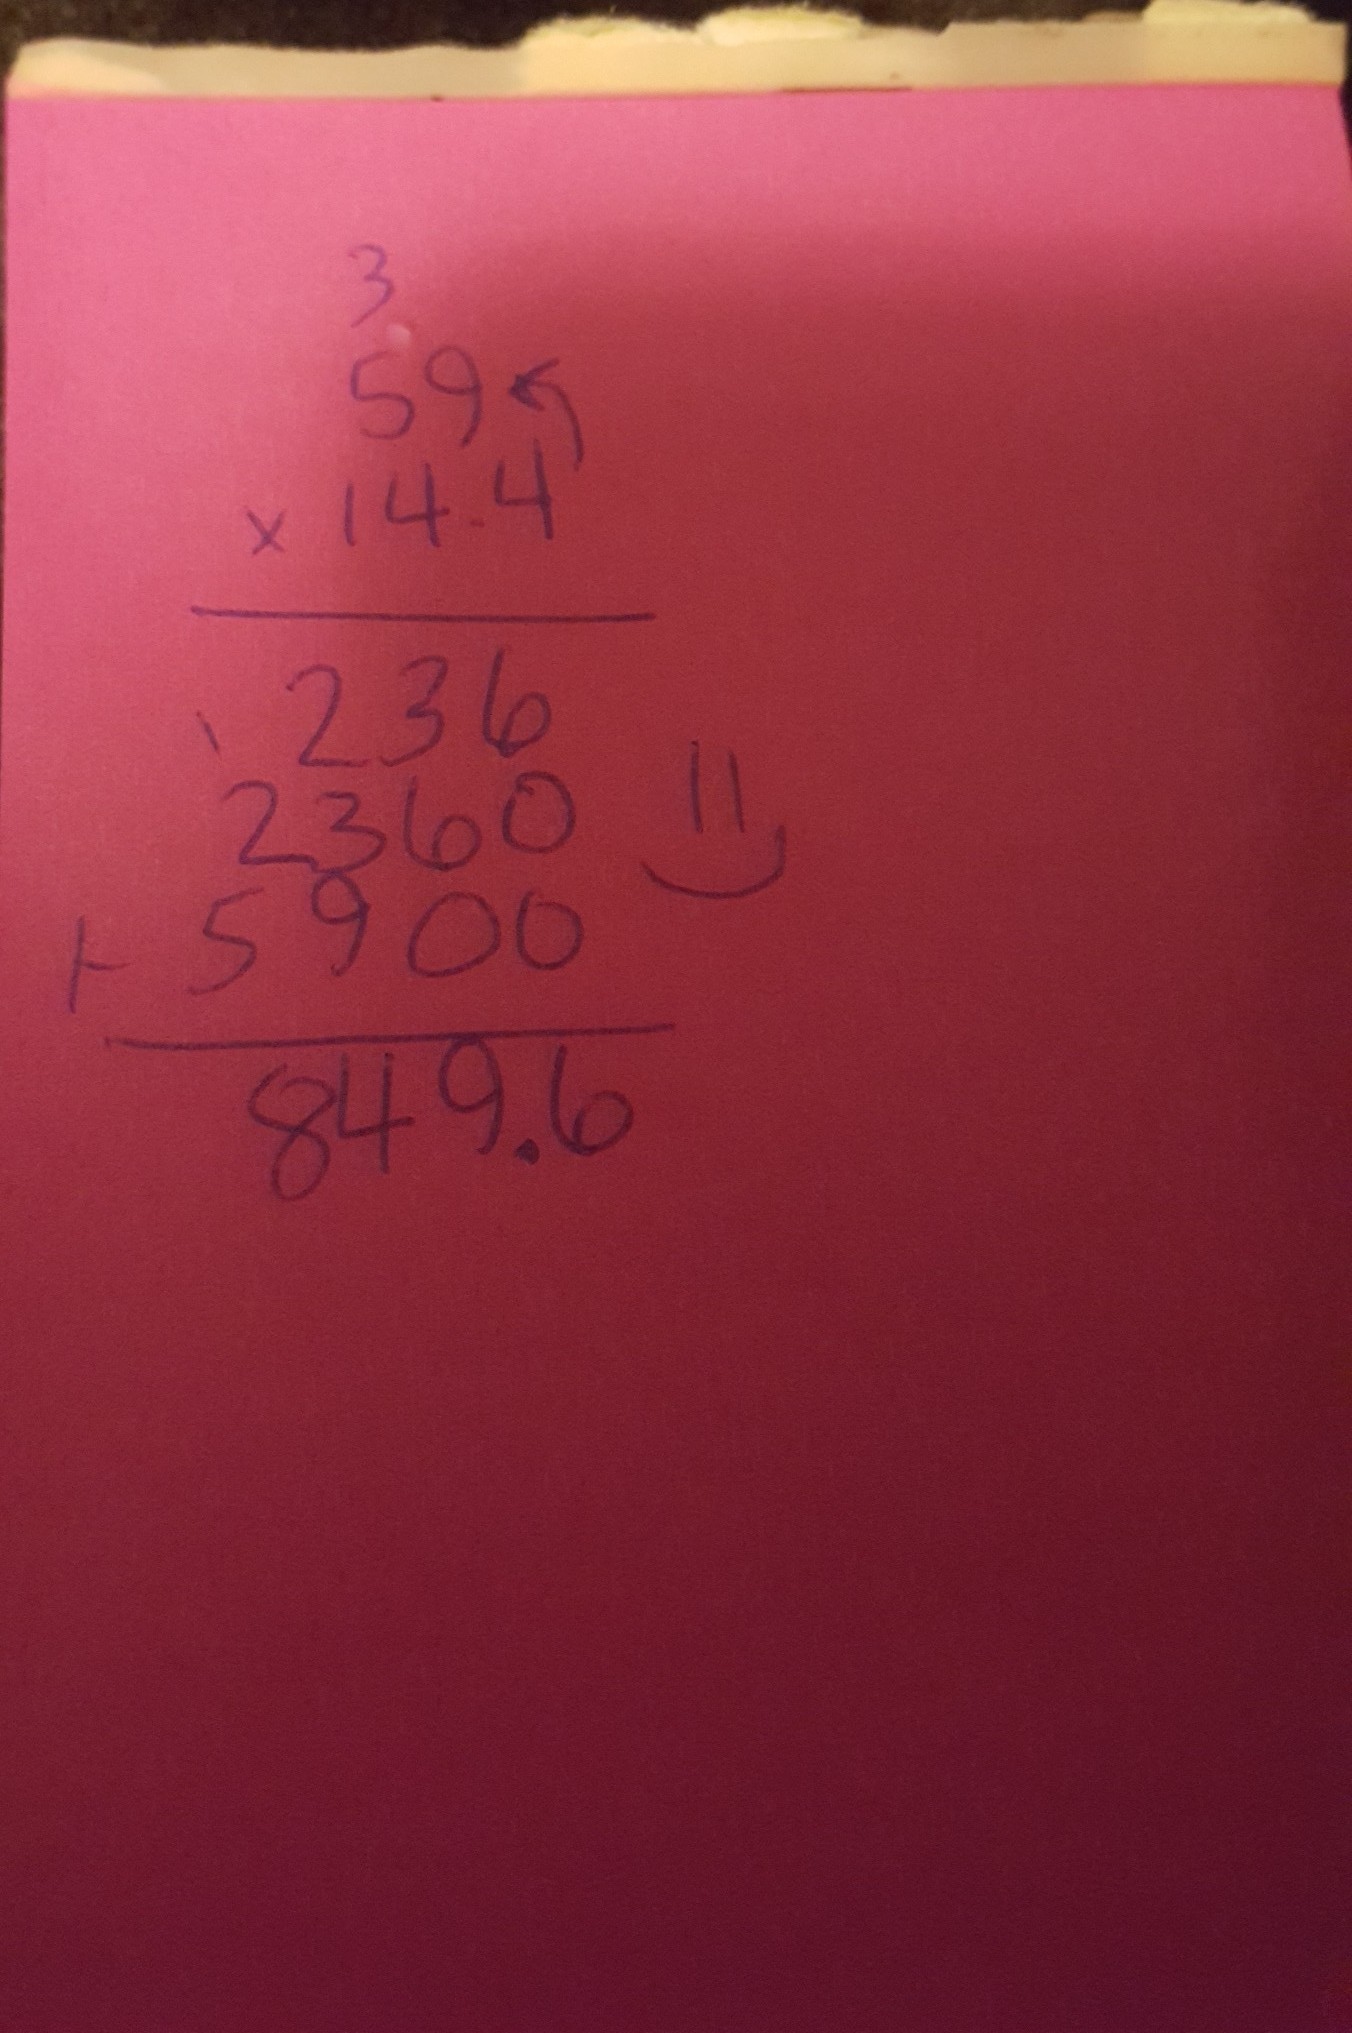 3
59
x 14.4
236
1
2360
+ 5900
849.6